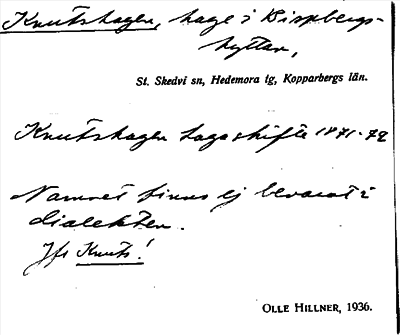 Knutshagen, hage i Bispbergs-
hyttan,
St. Skedvi sn, Hedemora tg, Kopparbergs län.
Knutshagen Laga skifte 1871-72
Namnet finns ej bevarat i
dialekten.
Jfr Knuts!
OLLE HILLNER, 1936.